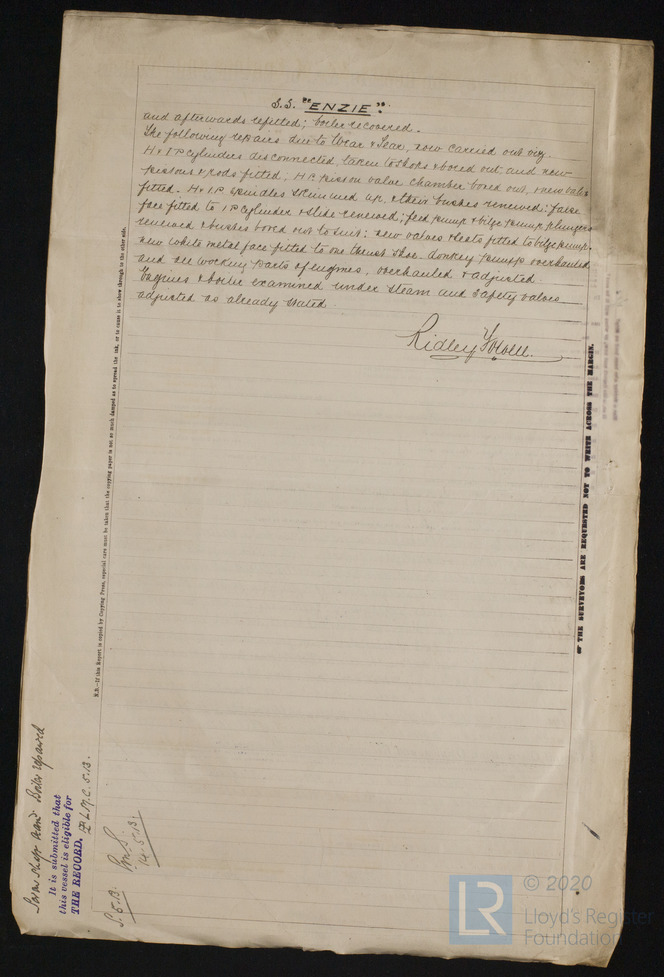 S.S. "ENZIE".
and afterwards refitted; boiler recovered.
The following repairs due to Wear & Tear, now carried out viz.
H & I P cylinders disconnected, taken to shops & bored out, and new
pistons & rods fitted, H P piston valve chamber bored out, & new valve
fitted. H & I P spindles skimmed up, & their bushes renewed; false
face fitted to I P cylinder & slide renewed; feed pump & bilge pump plungers
renewed & bushes bored out to suit; new valves & seats fitted to bilge pump.
new white metal face fitted to one thrust shoe. donkey pumps overhauled
and all working parts of engines, overhauled & adjusted.
Engines & boiler examined under steam and safety valves
adjusted as already stated
Ridley
N.B.—If this Report is copied by Copying Press, especial care must be taken that the copying paper is not so much damped as to spread the ink, or to cause it to show through to the other side.
OF THE SURVEYORS ARE REQUESTED NOT TO WRITE ACROSS THE MARGIN.
Boiler repaired
It is submitted that
this vessel is eligible for
THE RECORD.
L.M.C. 5.13.
14.5.13.
5.13.
LR
© 2020
Lloyd's Register
Foundation